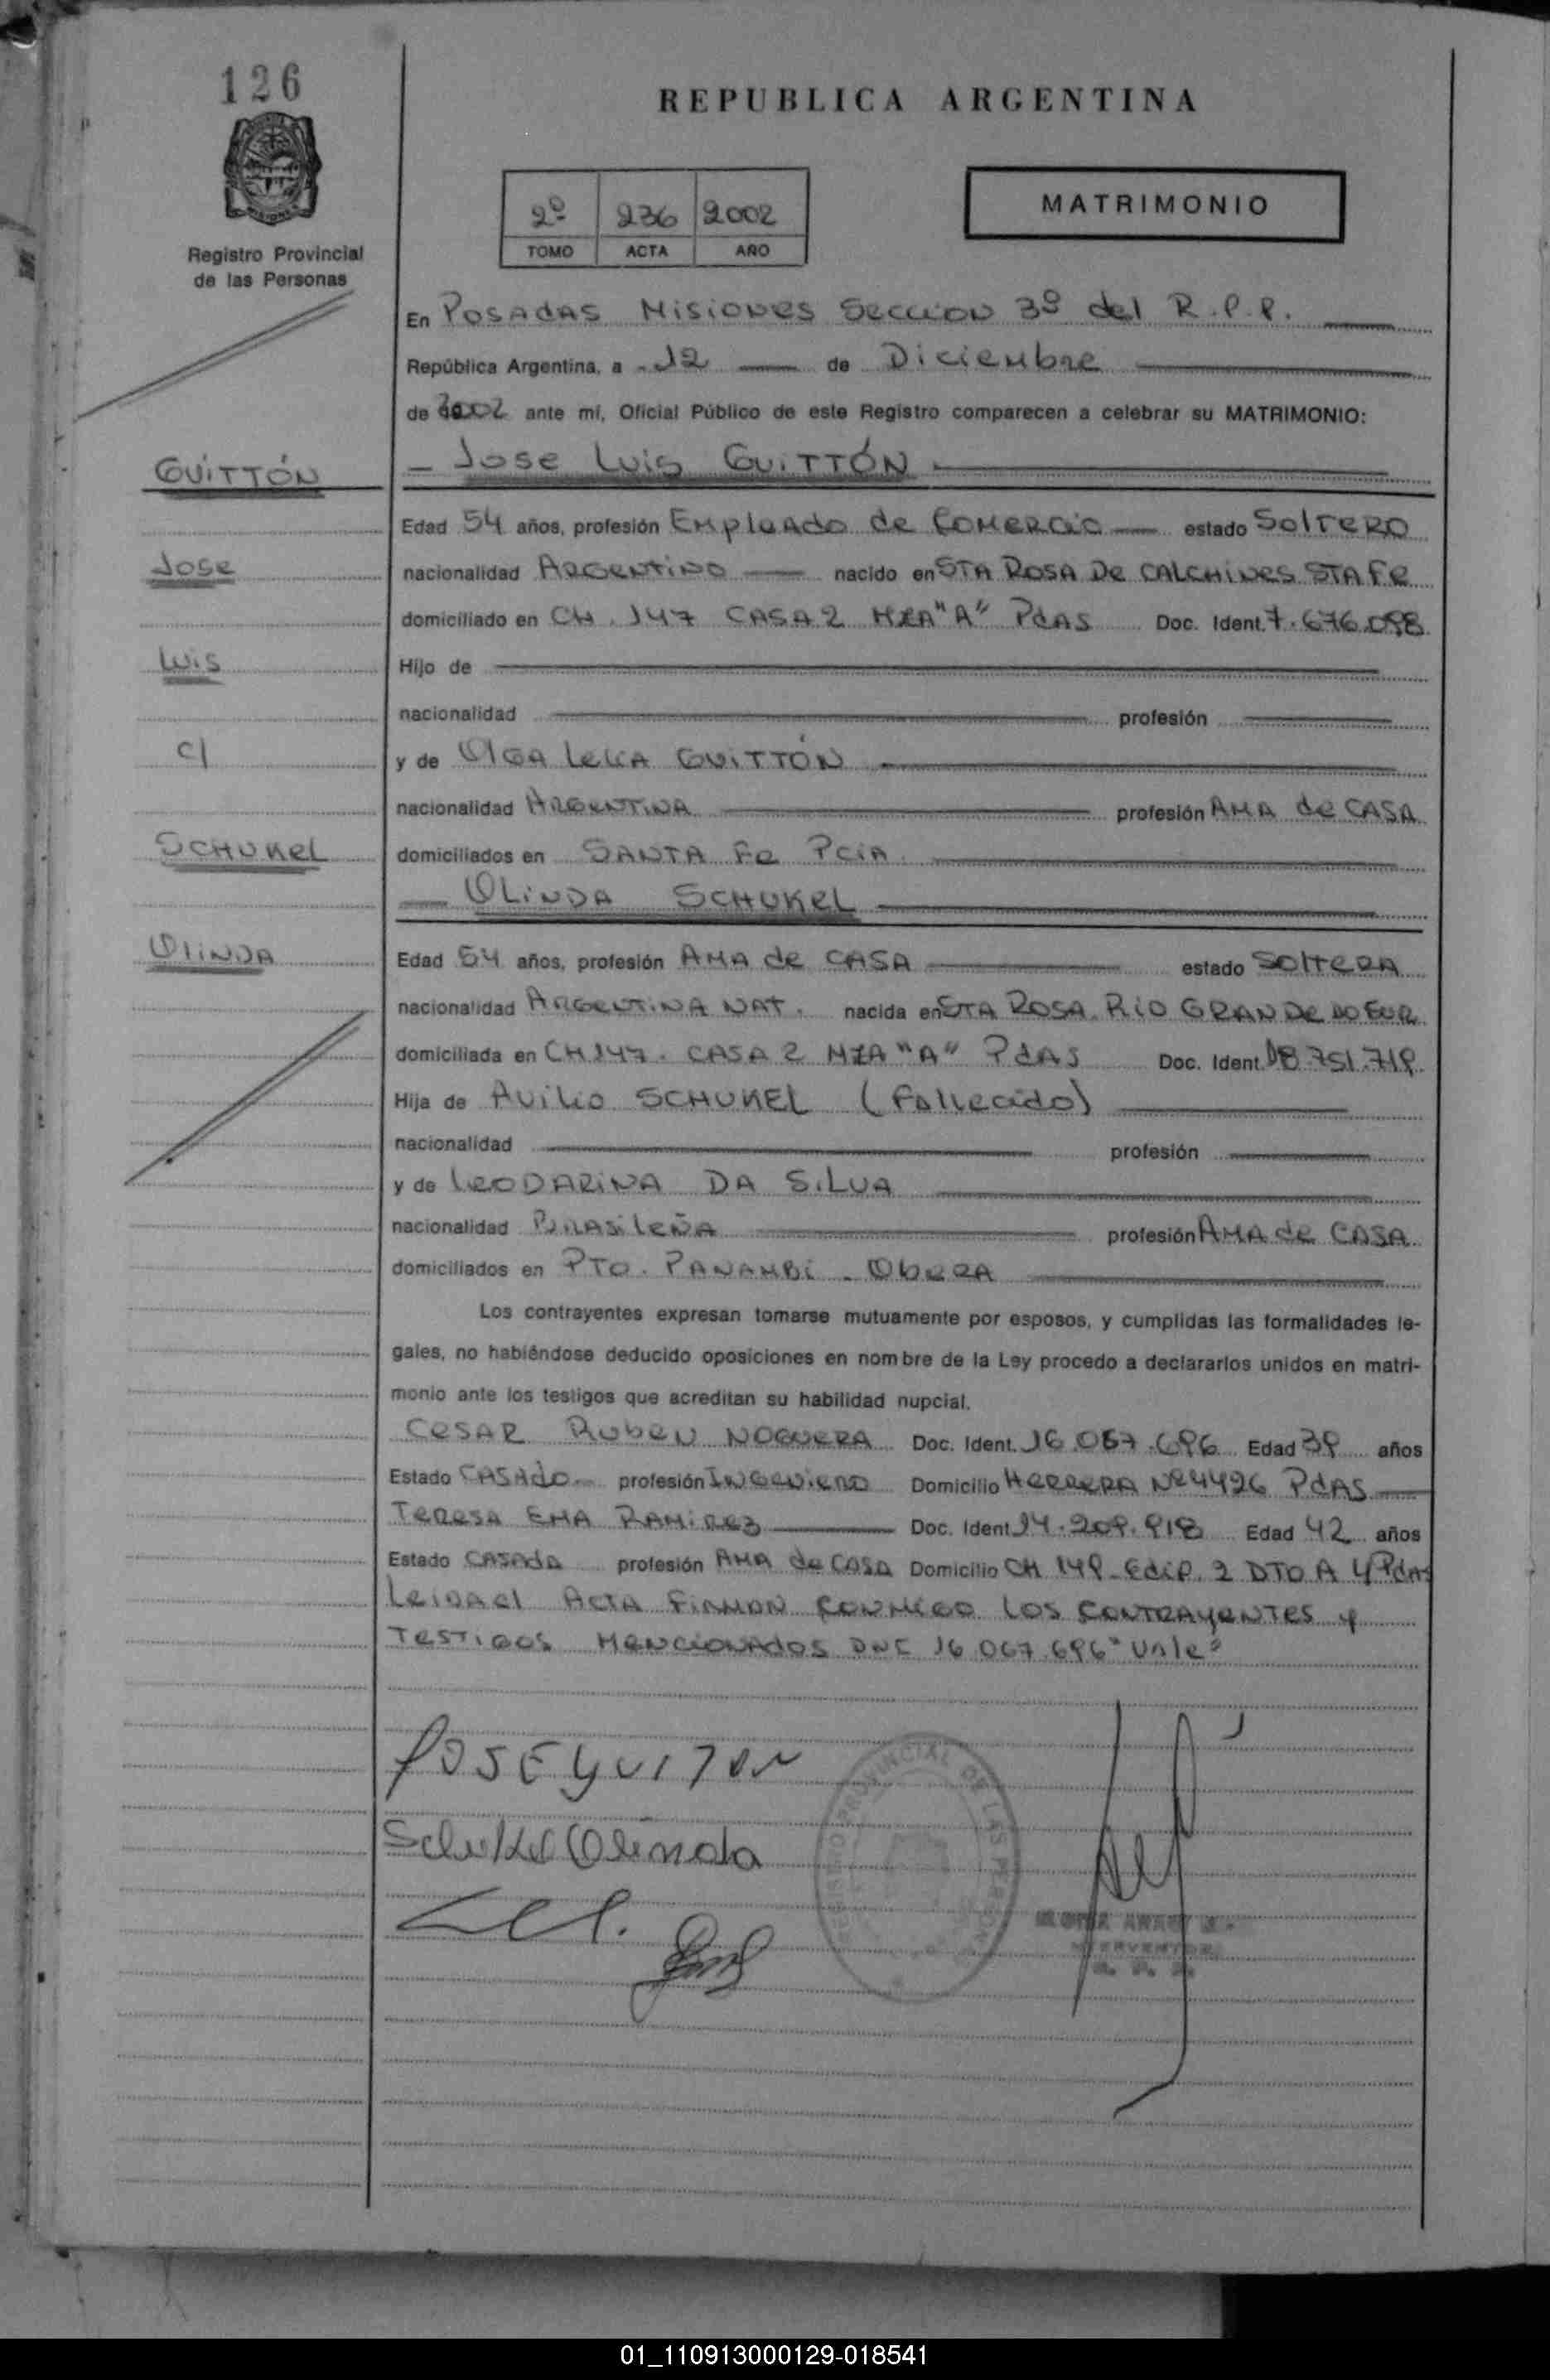 126
REPUBLICA ARGENTINA
MISIONES
Registro Provincial
de las Personas
2º 236 2002
TOMO ACTA AÑO
MATRIMONIO
En Posadas Misiones Seccion 3º del R.P.P.
República Argentina, a 12 de Diciembre
de 2002 ante mí, Oficial Público de este Registro comparecen a celebrar su MATRIMONIO:
GUITTÓN
Jose Luis GUITTÓN
Edad 54 años, profesión Empleado de Comercio estado Soltero
Jose
nacionalidad Argentino nacido en STA ROSA De CALCHINES STA Fe
domiciliado en CH. 147 CASA 2 MZA "A" PdAS Doc. Ident. 7.676.098
Luis
Hijo de
nacionalidad profesión
c/
y de Olga Lelia GUITTÓN
nacionalidad ARGENTINA profesión AMA de CASA
SCHUKEL
domiciliados en SANTA Fe PciA.
OLINDA SCHUKEL
OLINDA
Edad 54 años, profesión AMA de CASA estado SOlTERA
nacionalidad ARGENTINA NAT. nacida en STA ROSA. RIO GRANDE DO SUR
domiciliada en CH 147. CASA 2 MZA "A" PdAS Doc. Ident. 18.751.719
Hija de Avilio SCHUKEL (Fallecido)
nacionalidad profesión
y de LEODARINA DA SILVA
nacionalidad BRASILEÑA profesión AMA de CASA
domiciliados en PTO. PANAMBI. Obera
Los contrayentes expresan tomarse mutuamente por esposos, y cumplidas las formalidades le-
gales, no habiéndose deducido oposiciones en nombre de la Ley procedo a declararlos unidos en matri-
monio ante los testigos que acreditan su habilidad nupcial.
CESAR Ruben NOGUERA Doc. Ident. 16.067.696 Edad 39 años
Estado CASADO profesión INGENIERO Domicilio HERRERA Nº 4426 PdAS
TERESA EMA RAMIREZ Doc. Ident. 14.209.918 Edad 42 años
Estado CASAda profesión AMA de CASA Domicilio CH 149 Edif. 2 DTO A 4 PdAS
Leida el ACTA FIRMAN CONMIGO LOS CONTRAYENTES y
TESTIGOS MENCIONADOS DNI 16.067.696 "Vale"
JOSE GUITTON
Schukel Olinda
REGISTRO PROVINCIAL DE LAS PERSONAS
01_110913000129-018541